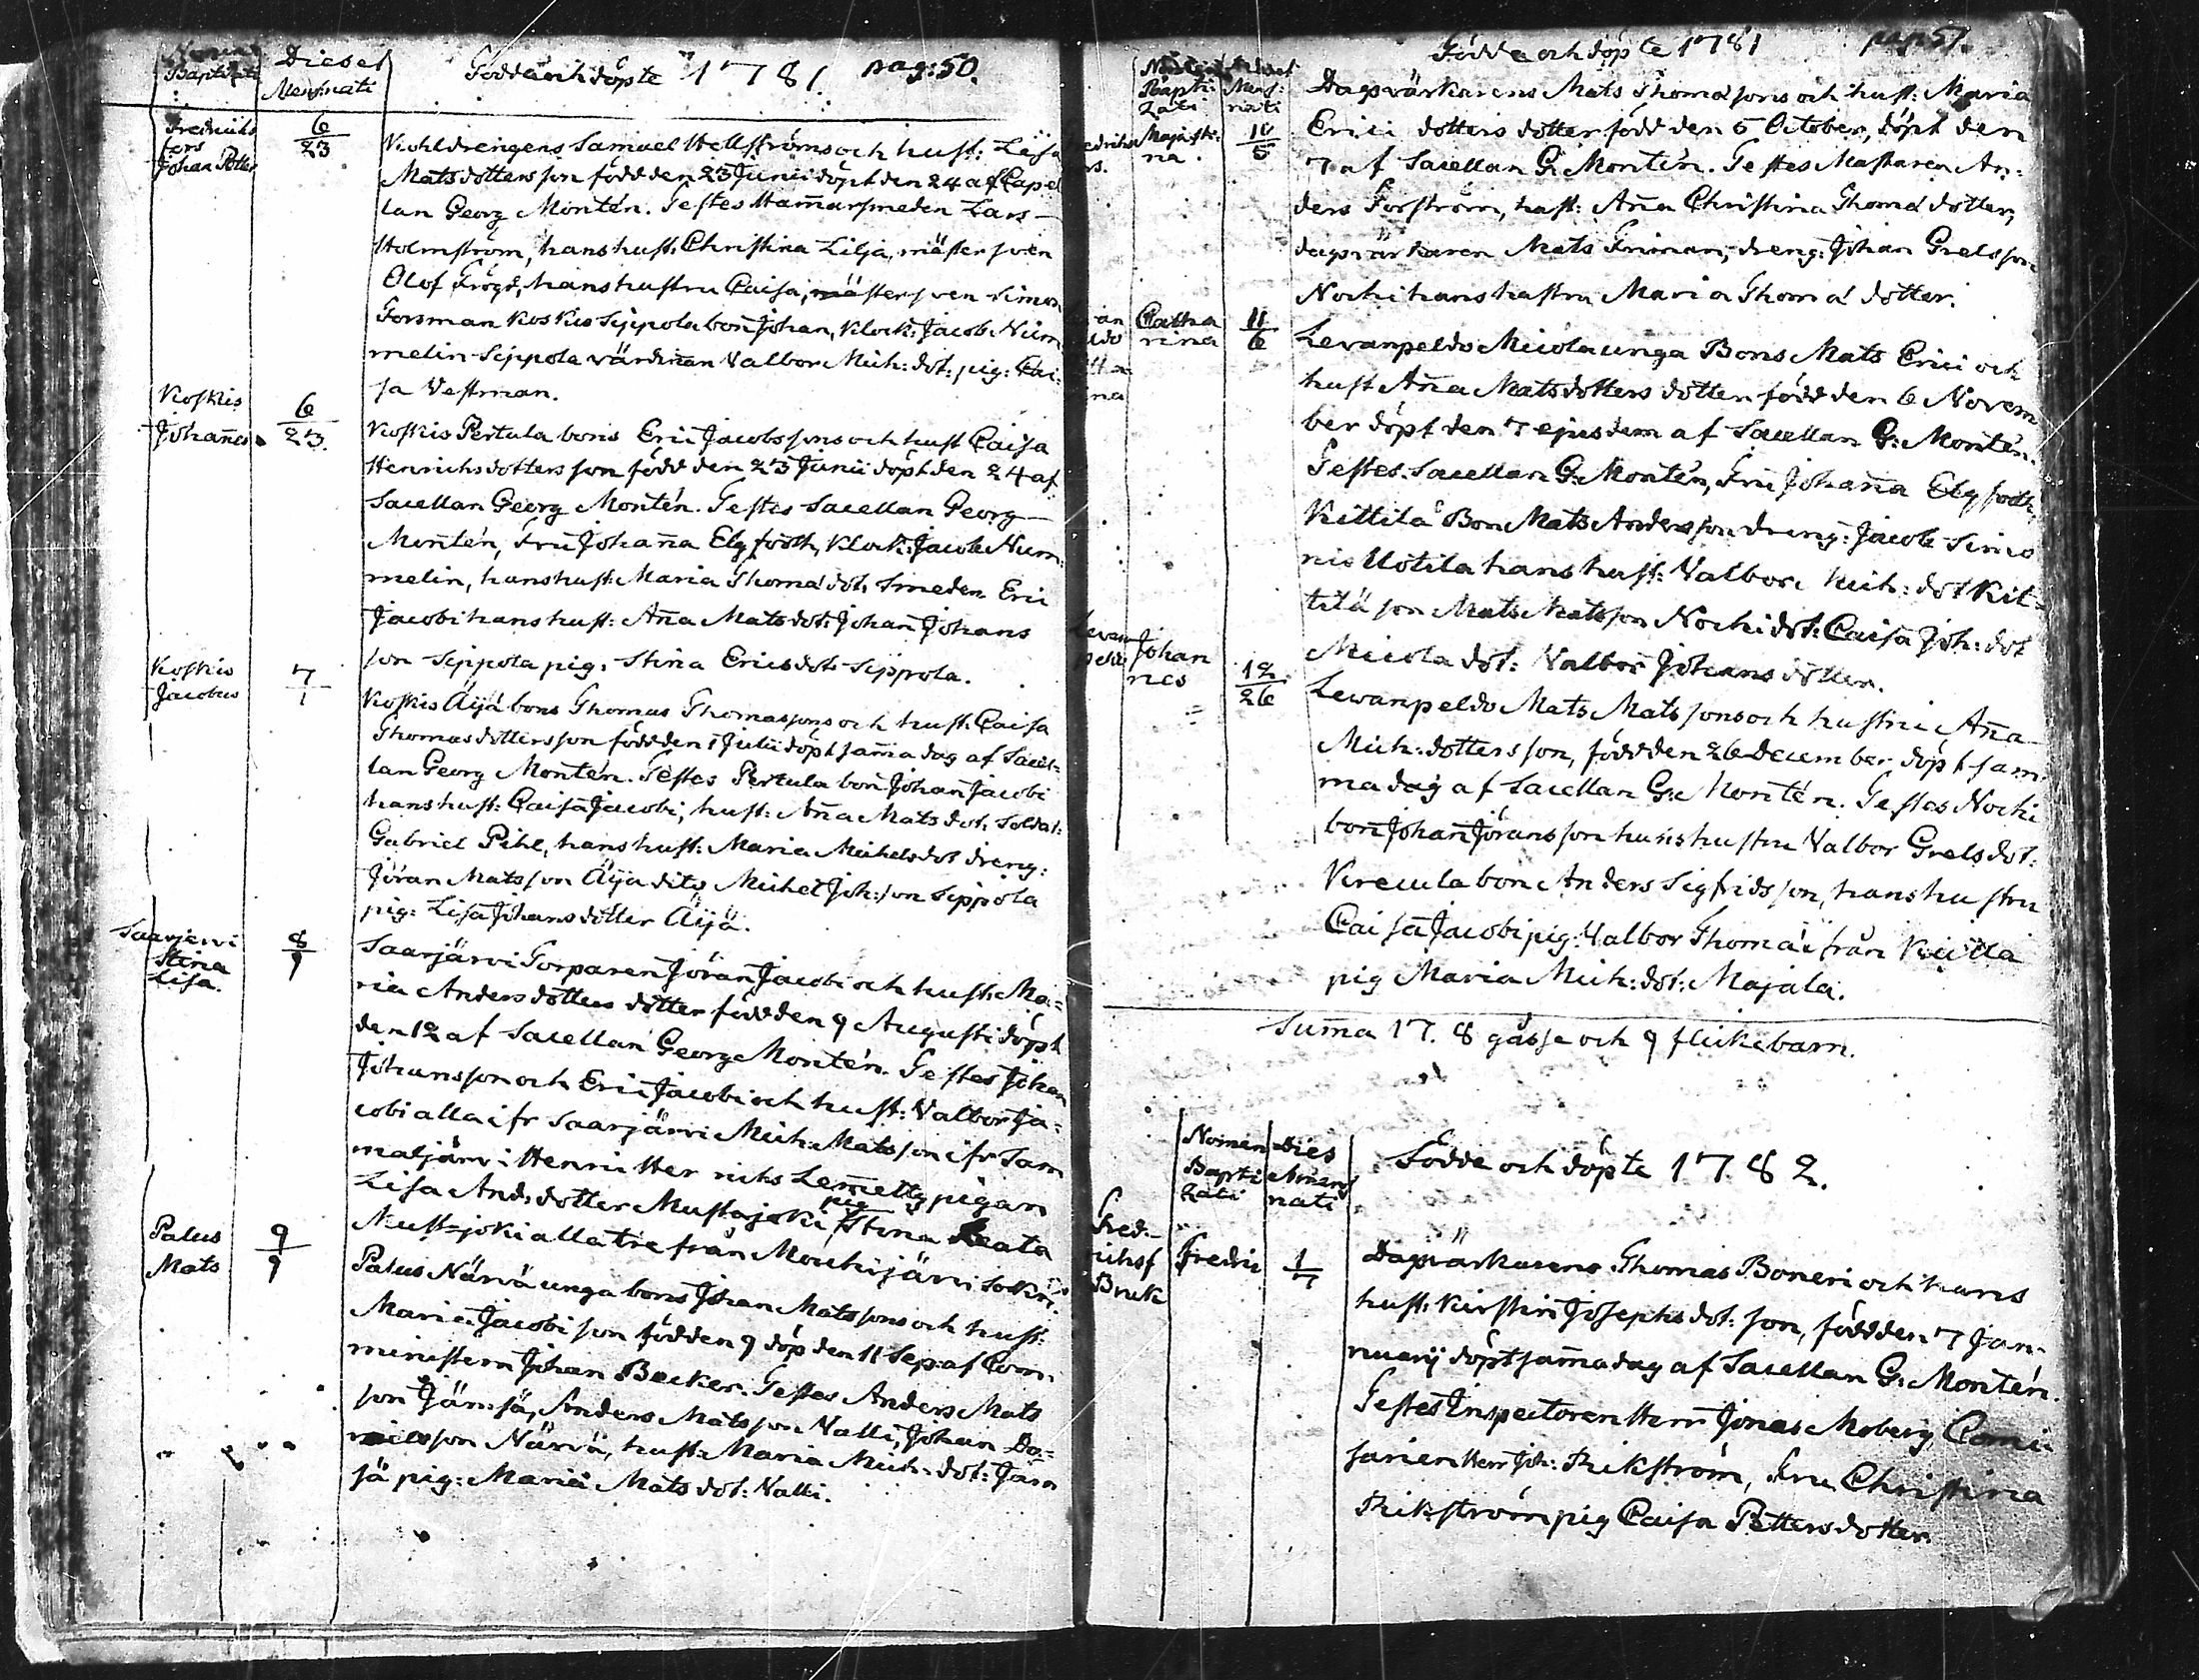 Nomen Baptizati
Dies et Mens: nati
Födda och döpte 1781. pag: 50.
Fredriks
fors
Johan Petter
6/23
Kohldrengens Samuel Hellströms och hust: Lisa
Matsdotters son född den 23 Junii döpt den 24 af Capel
lan Georg Montén. Testes Hammarsmeden Lars
Holmström, hans hust: Christina Lilja, mästersven
Olof Frögd, hans hustru Caisa, mästersven Simon
Forsman Koskis Sippola bon Johan, Klock: Jacob Num
melin Sippola värdinnan Valbor Mich: dot: pig: Cai-
sa Vestman.
Koskis
Johannes
6/23.
Koskis Pertula bons Eric Jacobssons och hust Caisa
Henrichsdotters son född den 23 Junii döpt den 24 af
Sacellan Georg Montén. Testes Sacellan Georg
Montén, Fru Johanna Elgfooth, Klock: Jacob Num
melin, hans hust: Maria Thomæ dot, Smeden Eric
Jacobi hans hust: Anna Mats dot: Johan Johans
son Sippola pig: Stina Erics dot: Sippola.
Koskis
Jacobus
7/1
Koskis Äijä bons Thomas Thomassons och hust: Caisa
Thomasdotters son född den 1 Julii döpt samma dag af Sacel-
lan Georg Montén. Testes Pertula bon Johan Jacobi
hans hust: Caisa Jacobi, hust: Anna Mats dot: Soldat:
Gabriel Pihl, hans hust: Maria Michels dot dreng:
Jöran Matsson Äijä dito Michel Joh:son Sippola
pig: Lisa Johansdotter Äijä.
Saarjervi
Stina
Lisa.
8/9
Saarjärvi Torparen Jöran Jacobi och hust: Ma-
ria Andersdotters dotter född den 9 Augusti döpt
den 12 af Sacellan Georg Montén. Testes Johan
Johansson och Eric Jacobi och hust: Valbor Ja-
cobi alla ifr Saarjärvi Mich: Matsson ifr Sam
maljärvi Henric Henrichs Lemetty pigan
Lisa And:dotter Mustajoki pig Stina Beata
Mustajoki alla tre från Mouhijärvi Sokn.
Palus
Mats
9/9
Palus Närvä unga bons Johan Matssons och hust:
Maria Jacobi son född den 9 döp den 11 Sep: af Com-
ministern Johan Backer. Testes Anders Mats
son Jämsä, Anders Matsson Nalli, Johan Da-
nielsson Närvä, hust: Maria Mich: dot: Jäm
sä pig: Maria Mats dot: Nalli.
Födde och döpte 1781 pag: 51.
Baptizati
Mens: nati
Dagsvärkarens Mats Thomæ sons och hust: Maria
Maja Stina.
10/5
Erici dotters dotter född den 5 October, döpt den
7 af Sacellan G: Montén. Testes Mastaren An-
ders Forström, hust: Anna Christina Thomæ dotter,
dagsvärkaren Mats Friman, dreng: Johan Grelsson
Nocki hans hustru Maria Thomæ dotter.
Catha
rina
11/6
Levanpeldo Micola unga Bons Mats Erici och
hust Anna Matsdotters dotter född den 6 Novem
ber döpt den 7 ejusdem af Sacellan G: Montén.
Testes Sacellan G: Montén, Fru Johanna Elgfooth,
Kittilä Bon Mats Andersson dreng: Jacob Simo
nis Uotila hans hust: Valbor Mich: dot Kit-
tilä son Mats Matsson Nocki dot: Caisa Joh: dot
Micola dot: Valbor Johans dotter.
Levan
peldo
Johan
nes
12/26
Levanpeldo Mats Matssons och hustru Anna
Mich: dotters son, född den 26 December, döpt sam
ma dag af Sacellan G: Montén. Testes Nocki
bon Johan Jöransson hans hustru Valbor Grels dot:
Krecula bon Anders Sigfridsson, hans hustru
Caisa Jacobi pig: Valbor Thomæ från Kiittä
pig Maria Mich: dot: Majala.
Summa 17. 8 gåsse och 9 flickebarn.
Nomen Baptizati
Dies Mens nati
Födde och döpte 1782.
Fred-
richsf
Bruk
Fredric
1/7
Dagsvärkarens Thomas Boneri och hans
hust: Kirstin Josephs dot: son, född den 7 Jan-
nuarij döpt samma dag af Sacellan G: Montén.
Testes Inspectoren Herr Jonas Moberg, Comis-
sarien Herr Joh: Rikström, Fru Christina
Rikström pig Caisa Pettersdotter.